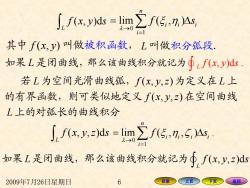 ∫_L f(x, y)ds = lim_{λ→0} ∑_{i=1}^{n} f(ξ_i, η_i)Δs_i
其中 f(x, y) 叫做被积函数， L 叫做积分弧段.
如果 L 是闭曲线，那么该曲线积分就记为∮_L f(x, y)ds .
若 L 为空间光滑曲线弧，f(x, y, z) 为定义在 L 上
的有界函数，则可类似地定义 f(x, y, z) 在空间曲线
L 上的对弧长的曲线积分
∫_L f(x, y, z)ds = lim_{λ→0} ∑_{i=1}^{n} f(ξ_i, η_i, ς_i)Δs_i .
如果 L 是闭曲线，那么该曲线积分就记为∮_L f(x, y, z)ds
2009年7月26日星期日 6